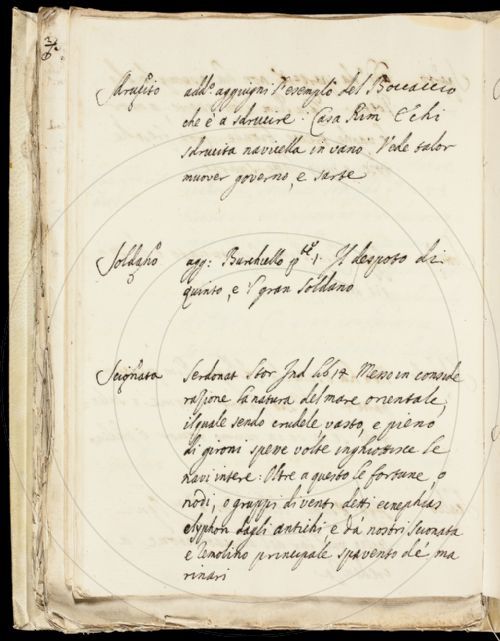 Sdrucito add.º aggiugni l'esempio del Boccaccio
che è a sdrucire: Casa Rim. E chi
sdrucita navicella in vano Vede talor
muover governo, e sarte
Soldano agg: Burchiello I Il despoto di
quinto, e 'l gran soldano
Scionata Serdonat Stor Ind lib 14 Messo in conside
razione la natura del mare orientale,
il quale sendo crudele, vasto, e pieno
di gironi speve volte inghiottisce le
navi intere: Oltre a questo le fortune, o
nodi, o gruppi di venti detti ecnephias
e typhon dagli antichi e da nostri scionata
e principale spavento de ma
rinari